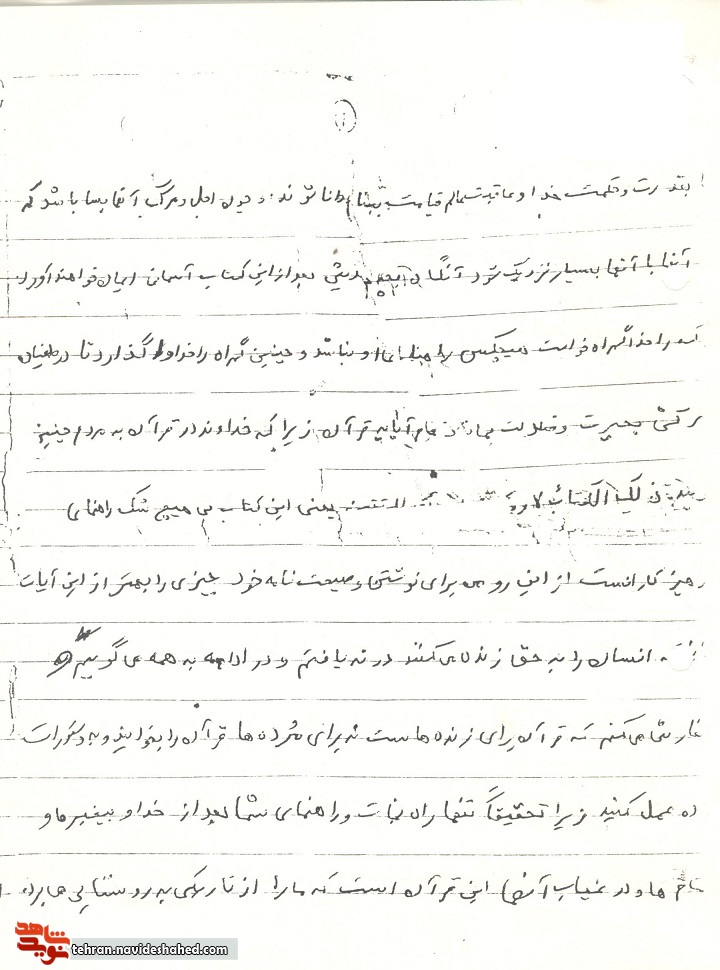 بقدرت و حکمت خدا و عاقبت عالم قیامت بینا و دانا شوند و چون اجل و مرگ آنها بسا باشد که
آنها با آنها بسیار نزدیک شود آنگاه بچه حدیثی بعد از این کتاب آسمانی ایمان خواهند آورد
را خدا گمراه خواست هیچکس راهنمای او نباشد و چنین گمراه را خدا واگذارد تا در طغیان
سرکشی بحیرت و ضلالت بماند قرآن زیرا که خداوند در قرآن به مردم چنین
ذلک الکتاب لا ریب المتقین یعنی این کتاب بی هیچ شک راهنمای
پرهیزکارانست از این رو من برای نوشتن وصیت نامه خود چیزی را بهتر از این آیات
که انسان را به حق زنده می کنند در نه یافتم و در ادامه به همه می گوییم و
سفارش می کنم که قرآن برای زنده هاست نه برای مرده ها قرآن را بخوانید و به دستورات
عمل کنید زیرا تحقیقاً تنها راه نجات و راهنمای شما بعد از خدا و پیغمبر ما و
امام ها و در غیاب آنها این قرآن است که ما را از تاریکی به روشنایی می برد
شاهد
نوید
tehran.navideshahed.com